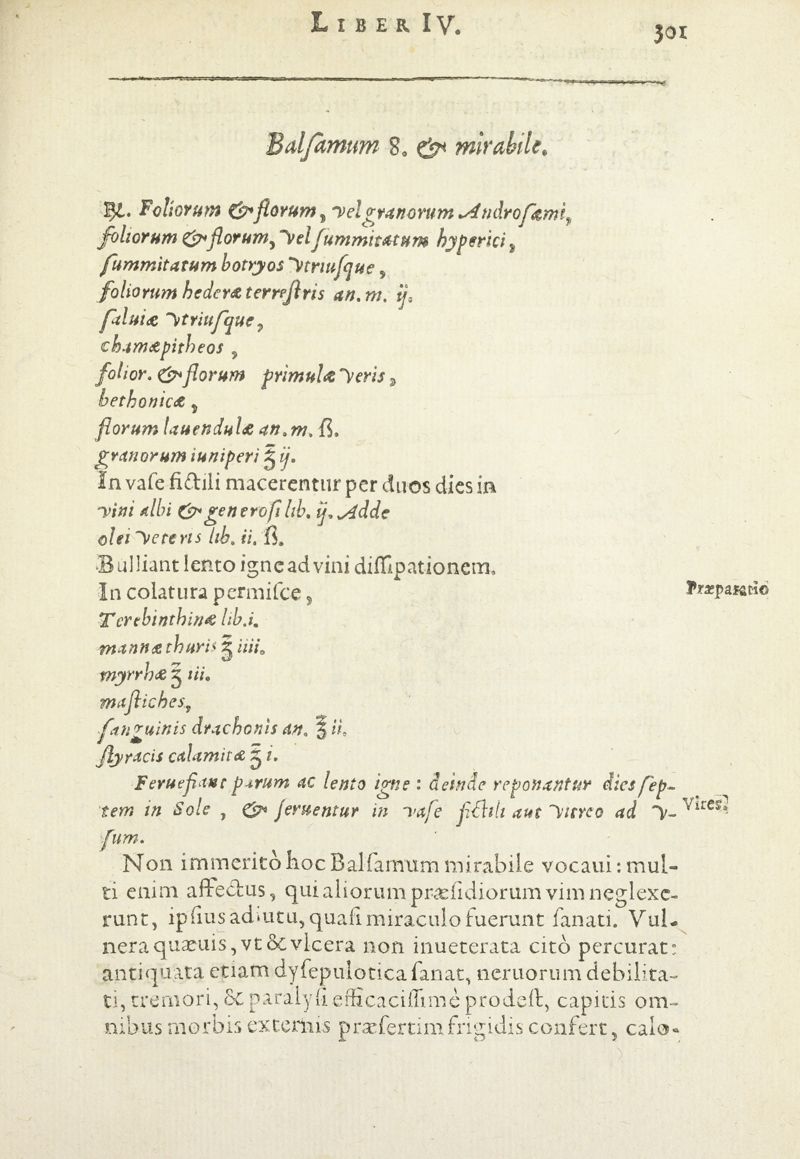 LIBER IV.
301
Balſamum 8. & mirabile.
℞. Foliorum & florum, vel granorum Androſæmi,
foliorum & florum, vel ſummitatum hyperici,
ſummitatum botryos vtriuſque,
foliorum hederæ terreſtris an. m. ij.
ſaluiæ vtriuſque,
chamæpitheos,
folior. & florum primulæ veris,
bethonicæ,
florum lauendulæ an. m. ß.
granorum iuniperi ℥ ij.
In vaſe fictili macerentur per duos dies in
vini albi & generoſi lib. ij. Adde
olei veteris lib. ii. ß.
Bulliant lento igne ad vini diſſipationem.
In colatura permiſce,
Præparatio
Terebinthinæ lib. i.
mannæ thuris ℥ iiii.
myrrhæ ℥ iii.
maſtiches,
ſanguinis drachonis an. ℥ ii.
ſtyracis calamitæ ℥ i.
Feruefiant parum ac lento igne : deinde reponantur dies ſep-
tem in Sole , & ſeruentur in vaſe fictili aut vitreo ad v-
Vires.
ſum.
Non immeritò hoc Balſamum mirabile vocaui : mul-
ti enim affectus, qui aliorum præſidiorum vim neglexe-
runt, ipſius adiutu, quaſi miraculo fuerunt ſanati. Vul-
nera quæuis, vt & vlcera non inueterata citò percurat:
antiquata etiam dyſepulotica ſanat, neruorum debilita-
ti, tremori, & paralyſi efficaciſſimè prodeſt, capitis om-
nibus morbis externis præſertim frigidis confert, calo-